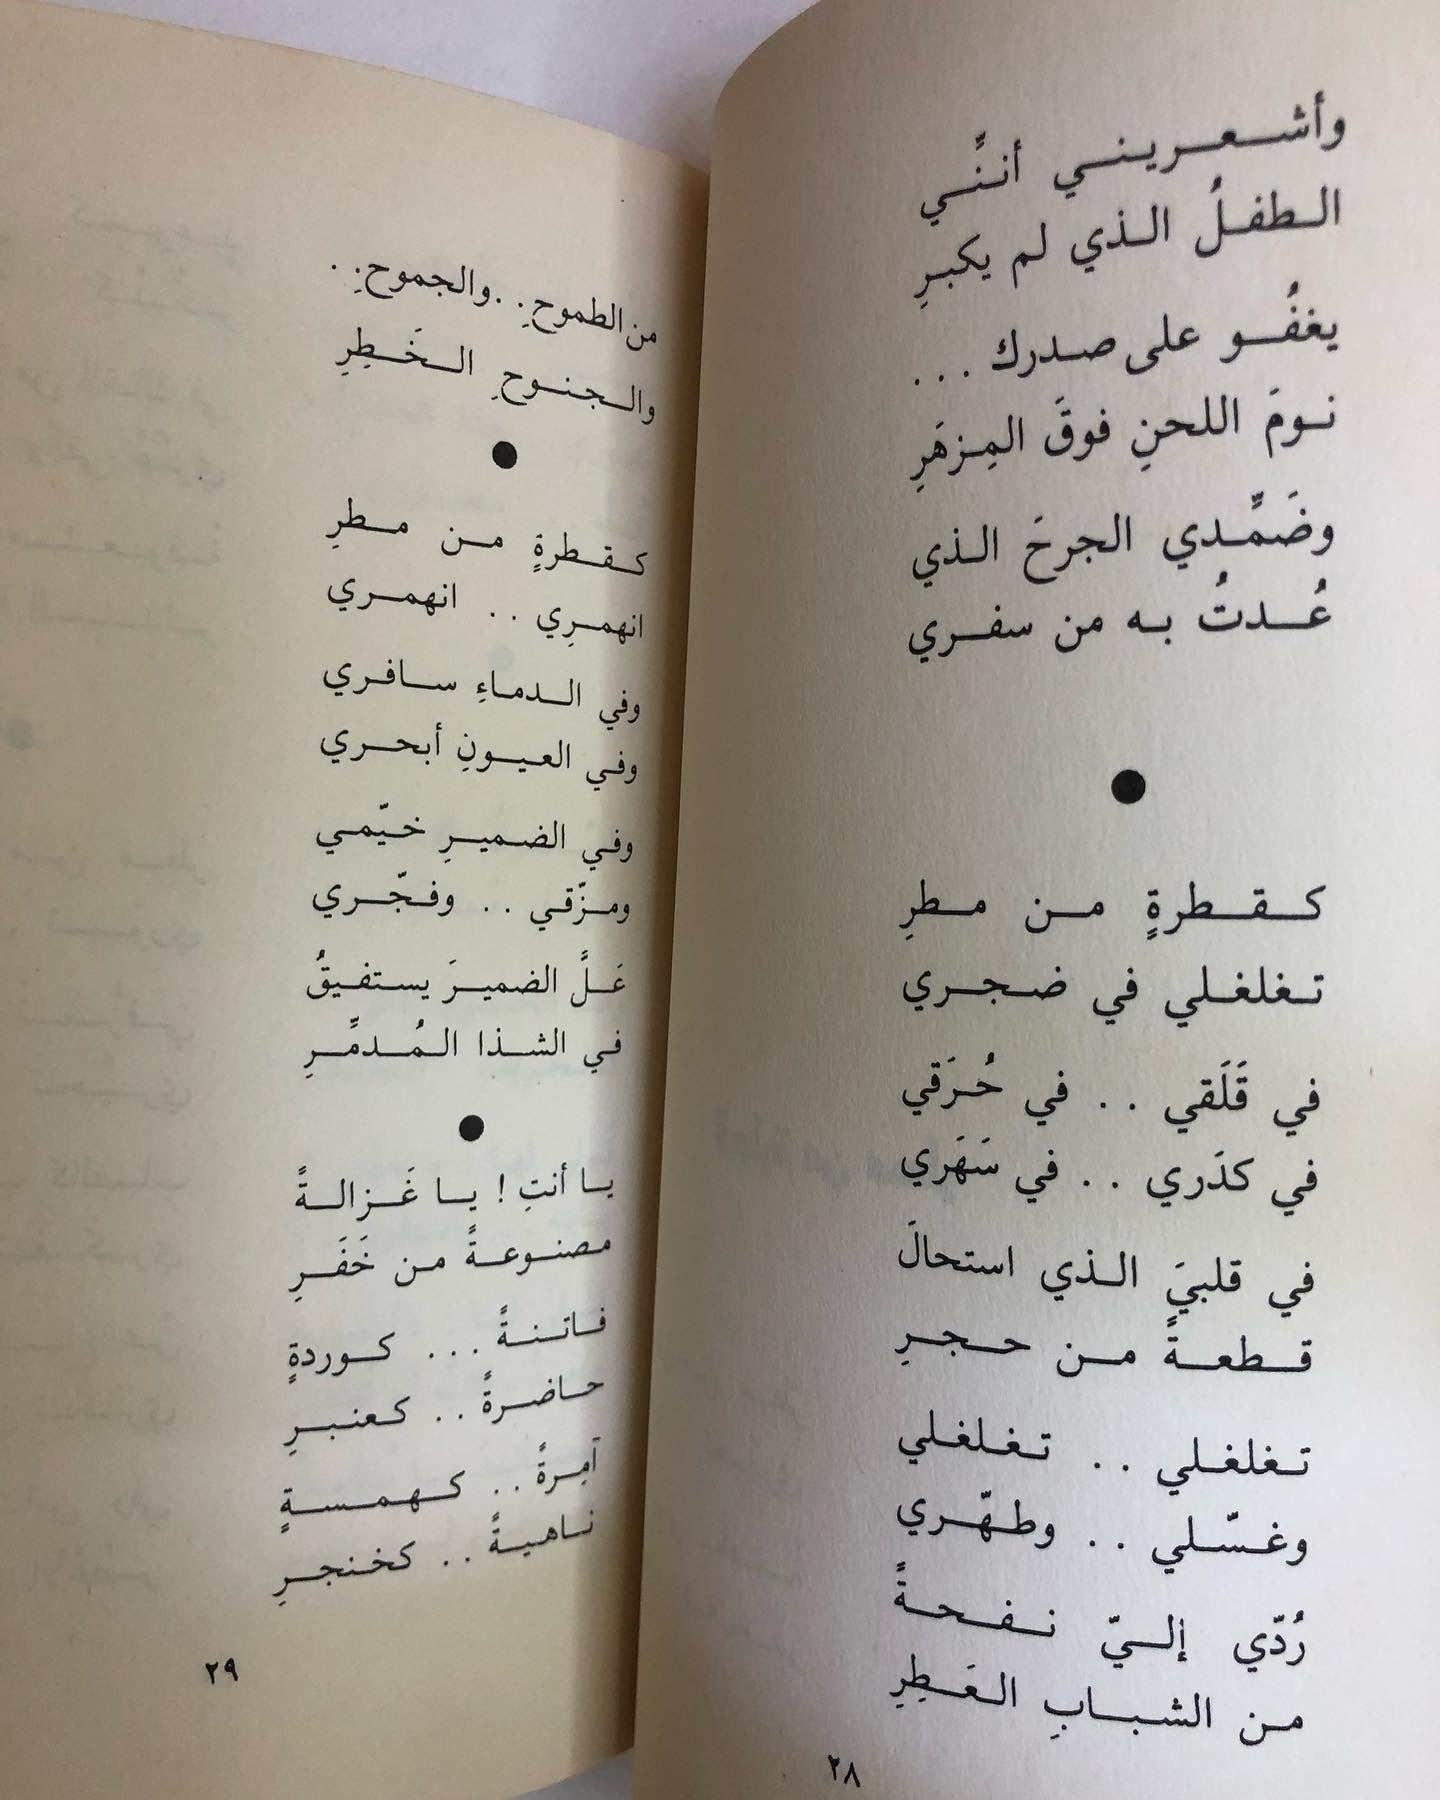 وأشعريني أنني
الطفلُ الذي لم يكبرِ
يغفُو على صدرك ...
نومَ اللحنِ فوقَ المِزهَرِ
وضَمِّدي الجرحَ الذي
عُدتُ به من سفري
●
كقطرةٍ من مطرِ
تغلغلي في ضجري
في قَلَقي .. في حُرَقي
في كدَري .. في سَهَري
في قلبيَ الذي استحالَ
قطعةً من حجرِ
تغلغلي .. تغلغلي
وغسّلي .. وطهّري
رُدّي إليّ نفحةً
من الشبابِ العَطِرِ
٢٨
من الطموحِ.. والجموحِ..
والجنوحِ الخَطِرِ
●
كقطرةٍ من مطرِ
انهمرِي .. انهمري
وفي الدماءِ سافري
وفي العيونِ أبحري
وفي الضميرِ خيّمي
ومزّقي .. وفجّري
عَلَّ الضميرَ يستفيقُ
في الشذا المُدمِّرِ
●
يا أنتِ ! يا غَزالةً
مصنوعةً من خَفَرِ
فاتنةً ... كوردةٍ
حاضرةً .. كعنبرِ
آمِرةً .. كهمسةٍ
ناهيةً .. كخنجرِ
٢٩